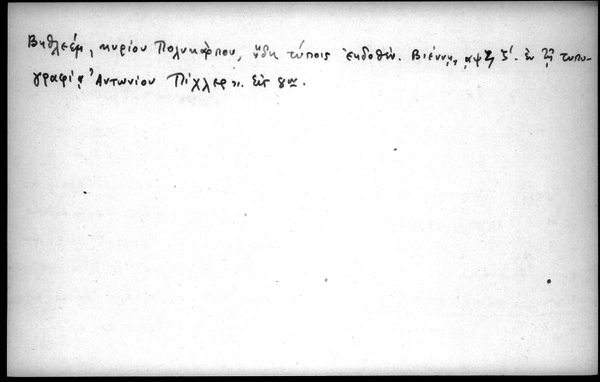 Βηθλεέμ, κυρίου Πολυκάρπου, ἤδη τύποις ἐκδοθέν. Βιέννῃ, αψϟζ΄. ἐν τῇ τυπο-
γραφίᾳ Ἀντωνίου Πίχλερ. εἰς 8ον.